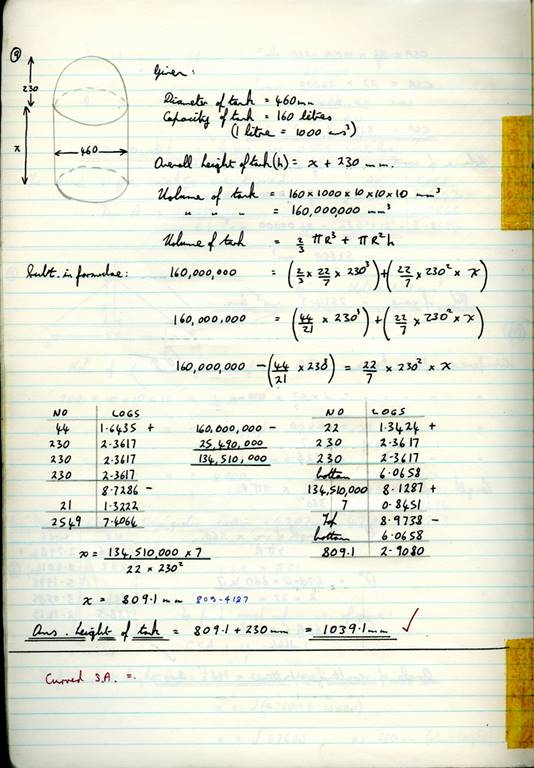 9
Given:
230
x
460
Diameter of tank = 460mm
Capacity of tank = 160 litres
(1 litre = 1000 cm³)
Overall height of tank (h) = x + 230 mm.
Volume of tank = 160 x 1000 x 10 x 10 x 10 mm³
" " " = 160,000,000 mm³
Volume of tank = 2/3 πR³ + πR²h
Subt. in formulae: 160,000,000 = (2/3 x 22/7 x 230³) + (22/7 x 230² x x)
160,000,000 = (44/21 x 230³) + (22/7 x 230² x x)
160,000,000 - (44/21 x 230³) = 22/7 x 230² x x
NO LOGS
44 1.6435 +
230 2.3617
230 2.3617
230 2.3617
8.7286 -
21 1.3222
2549 7.4064
160,000,000 -
25,490,000
134,510,000
NO LOGS
22 1.3424 +
230 2.3617
230 2.3617
bottom 6.0658
134,510,000 8.1287 +
7 0.8451
Top 8.9738 -
bottom 6.0658
809.1 2.9080
x = 134,510,000 x 7 / 22 x 230²
x = 809.1 mm 809.4187
Ans. height of tank = 809.1 + 230mm = 1039.1mm ✓
Curved S.A. =